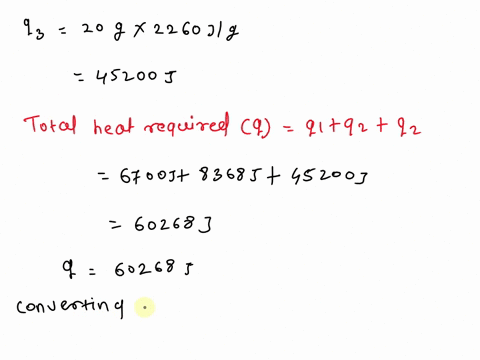 q3 = 20 g × 2260 J/g
= 45200 J
Total heat required (q) = q1 + q2 + q2
= 6700J + 8368J + 45200J
= 60268 J
q = 60268 J
converting